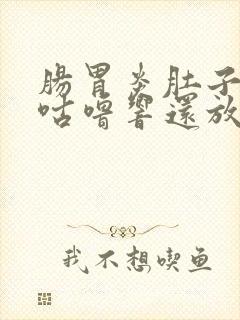 腸胃炎肚子
咕嚕響還放
我不想喫鱼